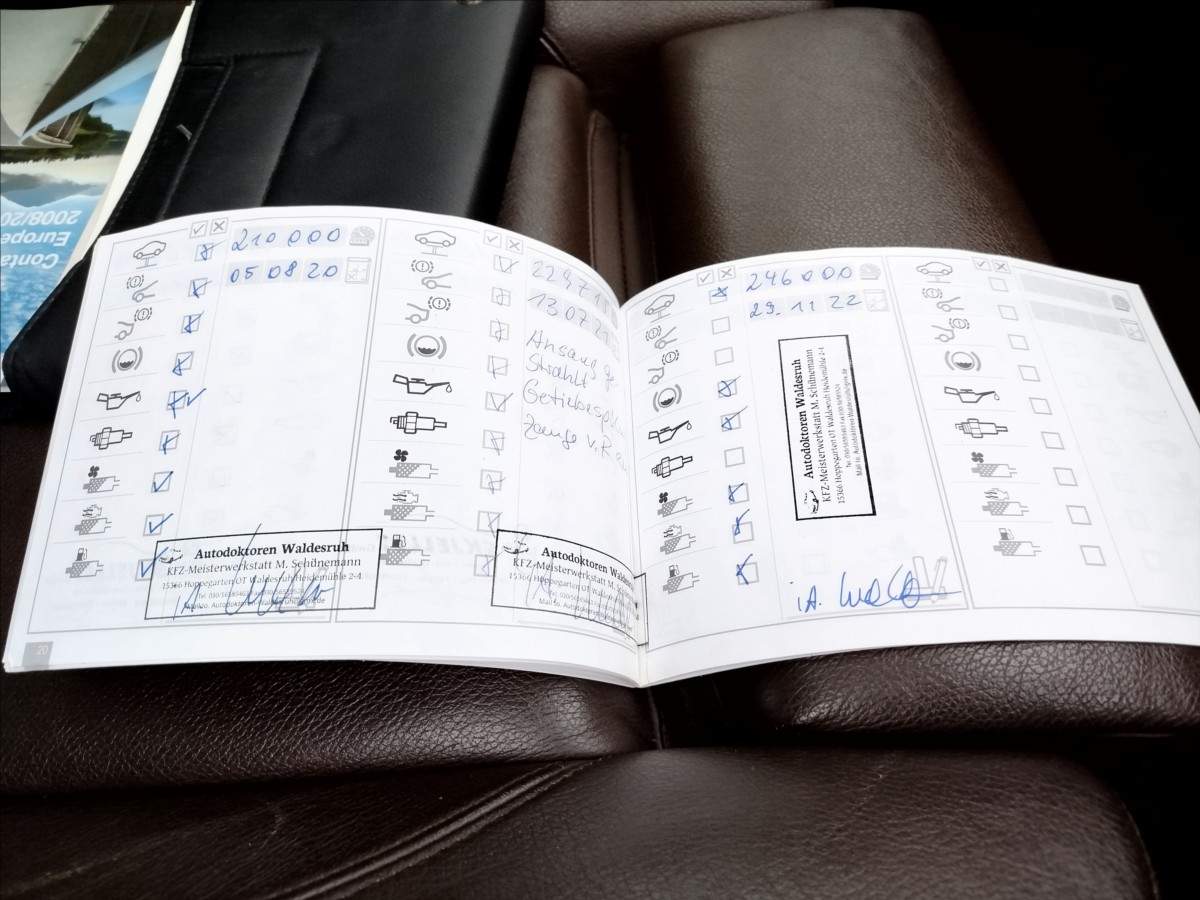 2008/20
Europe
Conta
210 000
05 08 20
Autodoktoren Waldesruh
KFZ-Meisterwerkstatt M. Schünemann
15366 Hoppegarten OT Waldesruh Heidemühle 2-4
20
13 07 2
Ansaug ge
strahlt
Getriebespülu
Autodoktoren Waldesruh
KFZ-Meisterwerkstatt M.
15366 Hoppegarten OT Waldesruh
246 000
29. 11 22
Autodoktoren Waldesruh
KFZ-Meisterwerkstatt M. Schünemann
15366 Hoppegarten OT Waldesruh Heidemühle 2-4
i.A.